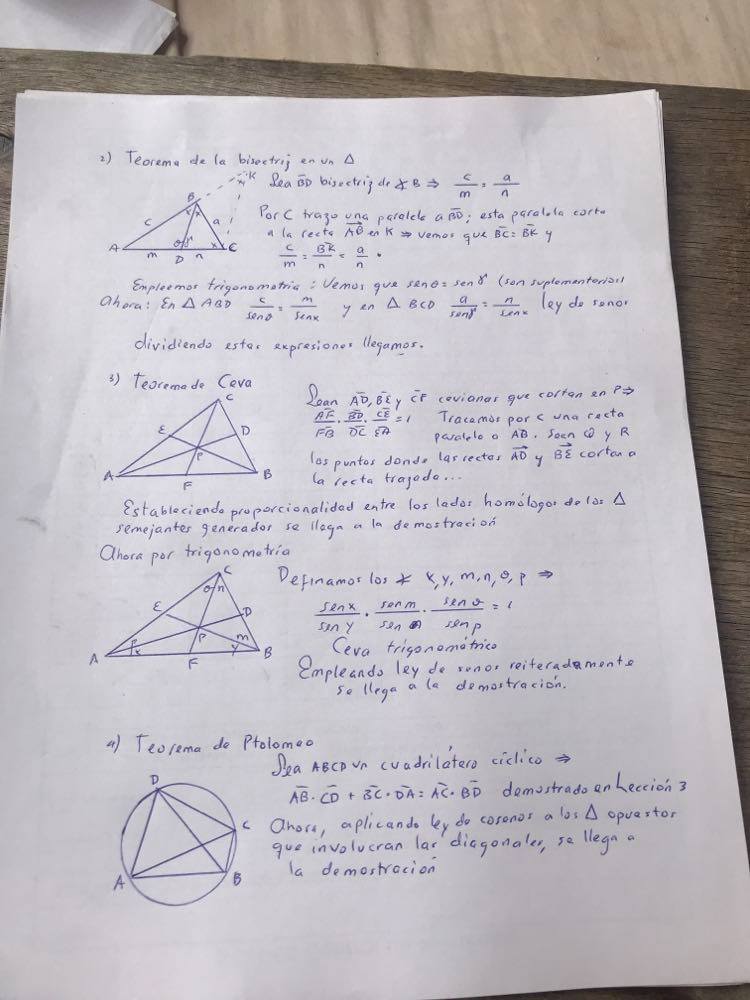 2) Teorema de la bisectriz en un Δ
Sea BD bisectriz de ∡ B ⇒ c/m = a/n
Por C trazo una paralela a BD; esta paralela corta
a la recta AB en K ⇒ vemos que BC = BK y
c/m = BK/n = a/n .
K
B
c
a
A
m
D
n
C
θ
γ
x
x
x
Empleemos trigonometría : Vemos que senθ = senγ (son suplementarios)
Ahora: En Δ ABD c/senθ = m/senx y en Δ BCD a/senγ = n/senx ley de senos
dividiendo estas expresiones llegamos.
3) Teorema de Ceva
Sean AD, BE y CF cevianas que cortan en P ⇒
AF/FB · BD/DC · CE/EA = 1 Tracemos por C una recta
paralela a AB. Sean Q y R
los puntos donde las rectas AD y BE cortan a
la recta trazada...
C
E
D
P
A
F
B
Estableciendo proporcionalidad entre los lados homólogos de los Δ
semejantes generados se llega a la demostración
Ahora por trigonometría
Definamos los ∡ x, y, m, n, θ, p ⇒
senx/seny · senm/senn · senθ/senp = 1
Ceva trigonométrico
Empleando ley de senos reiteradamente
se llega a la demostración.
C
θ
n
E
D
P
p
x
m
y
A
F
B
4) Teorema de Ptolomeo
Sea ABCD un cuadrilátero cíclico ⇒
AB · CD + BC · DA = AC · BD demostrado en Lección 3
Ahora, aplicando ley de cosenos a los Δ opuestos
que involucran las diagonales, se llega a
la demostración
D
C
A
B